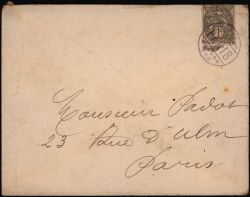 Monsieur Sadot
23 Rue d'Ulm
Paris